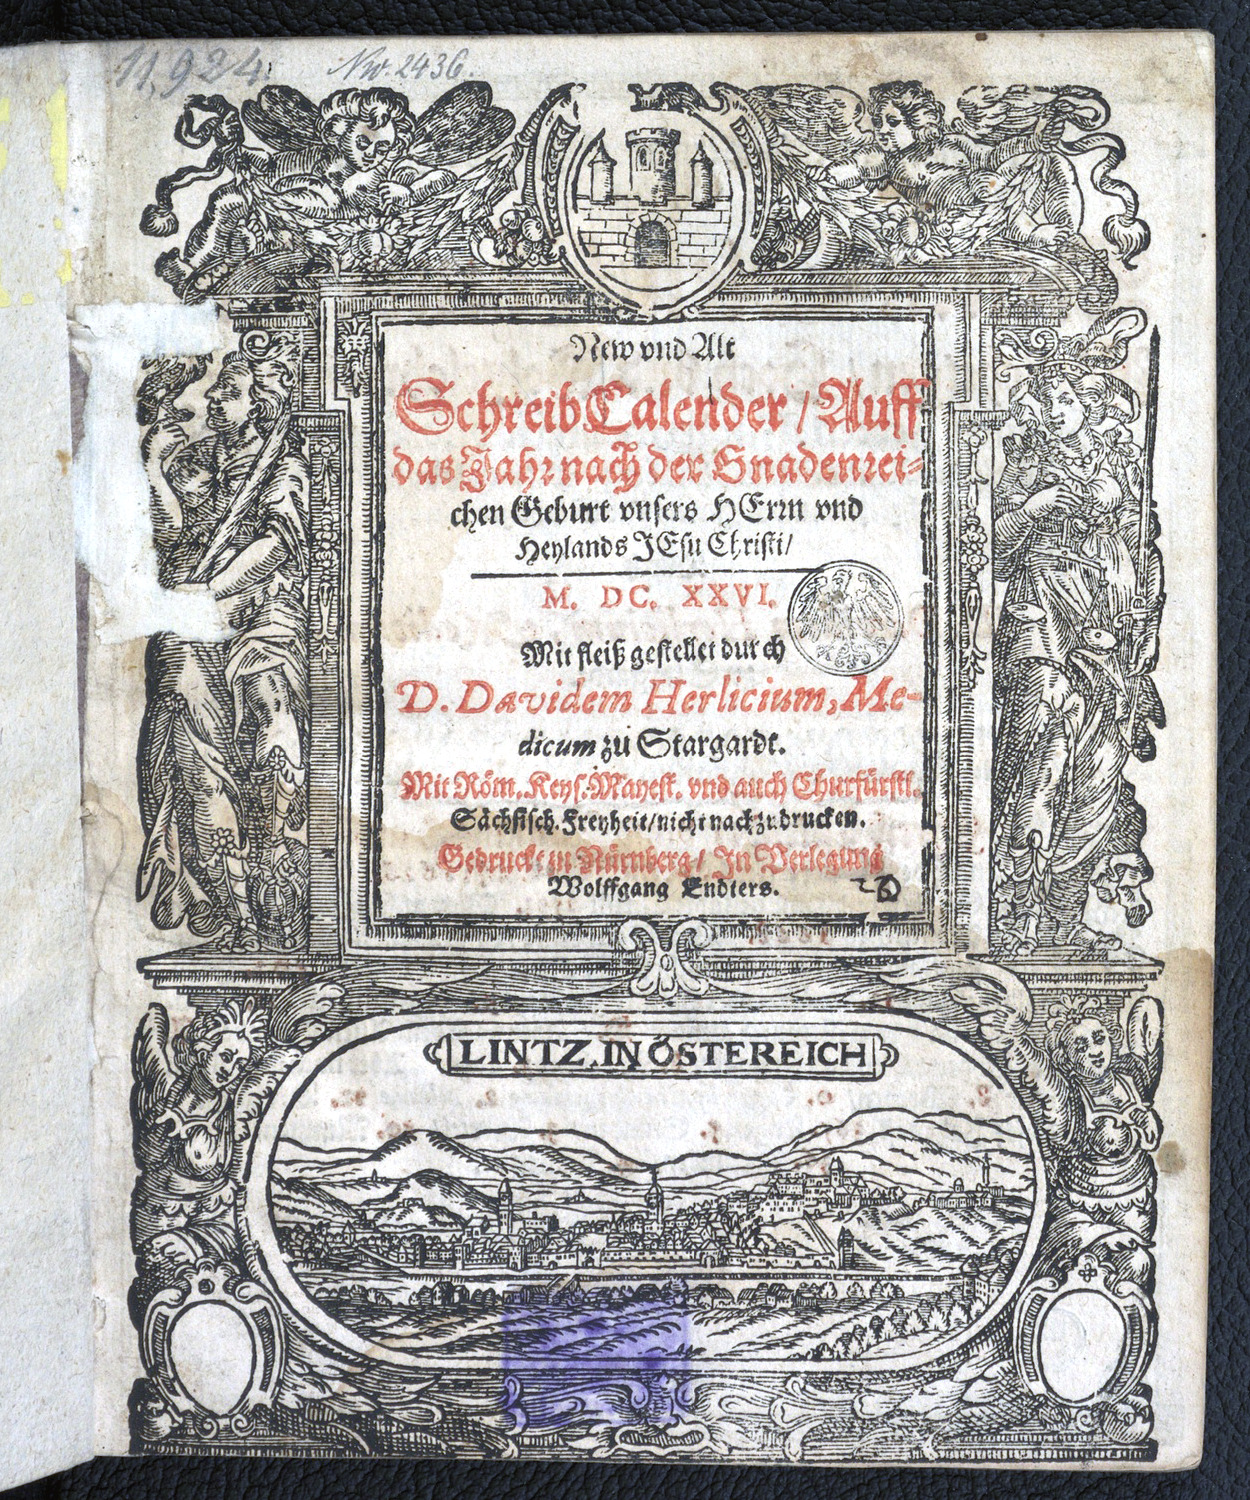 11,924.
Nw. 2436.
New vnd Alt
SchreibCalender / Auff
das Jahr nach der Gnadenrei-
chen Geburt vnsers HErrn vnd
Heylands JEsu Christi/
M. DC. XXVI.
Mit fleiß gestellet durch
D. Davidem Herlicium, Me-
dicum zu Stargardt.
Mit Röm. Keys. Mayest. vnd auch Churfürstl.
Sächsisch. Freyheit/nicht nachzudrucken.
Gedruckt in Nürnberg/ In Verlegung
Wolffgang Endters.
LINTZ. IN ÖSTEREICH